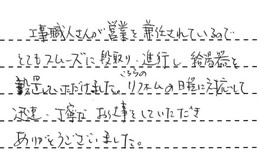 工事職人さんが営業を兼任されているので
とてもスムーズに段取り・進行し、給湯器を
設置していただけました。こちらのリフォームの日程に対応して
迅速・丁寧なお仕事をしていただき
ありがとうございました。